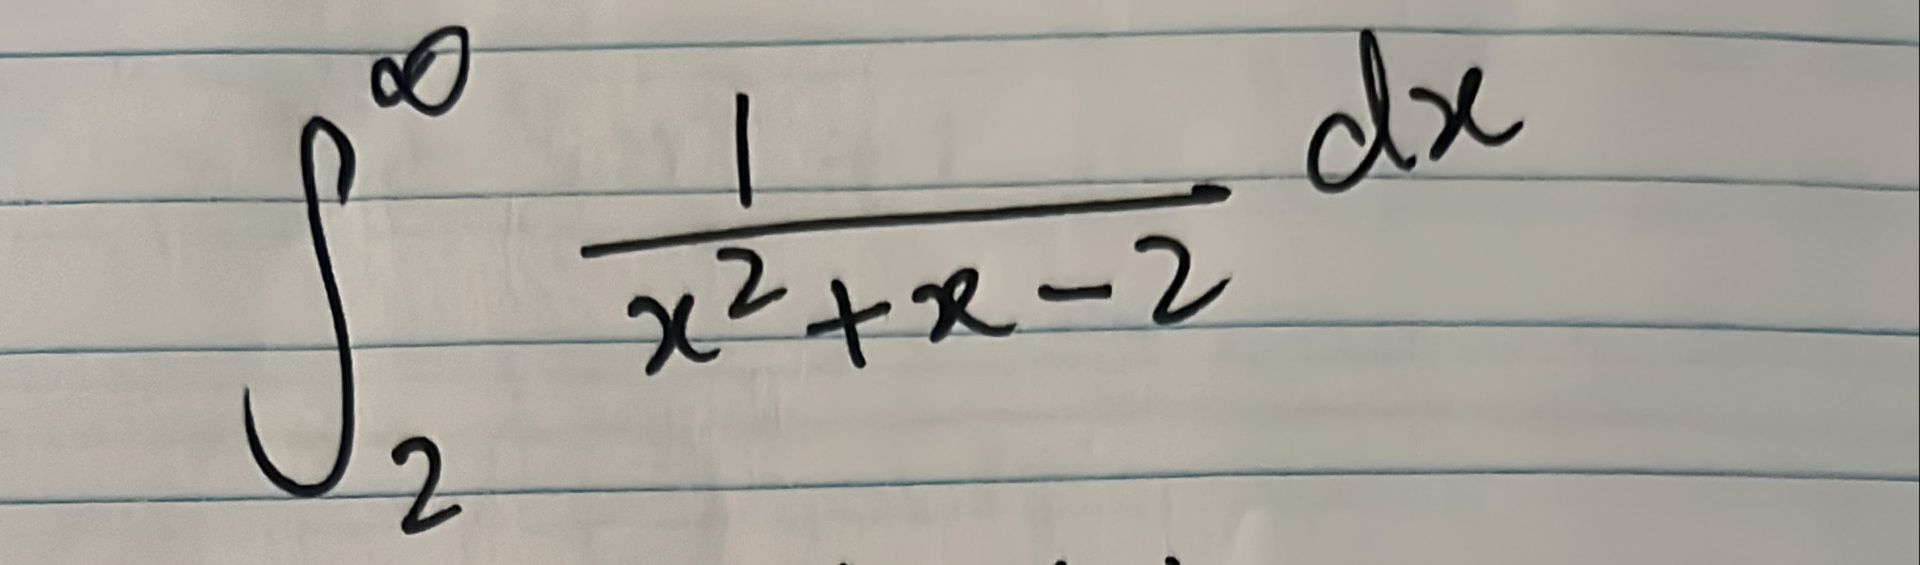 ∫₂^∞ 1/(x² + x - 2) dx